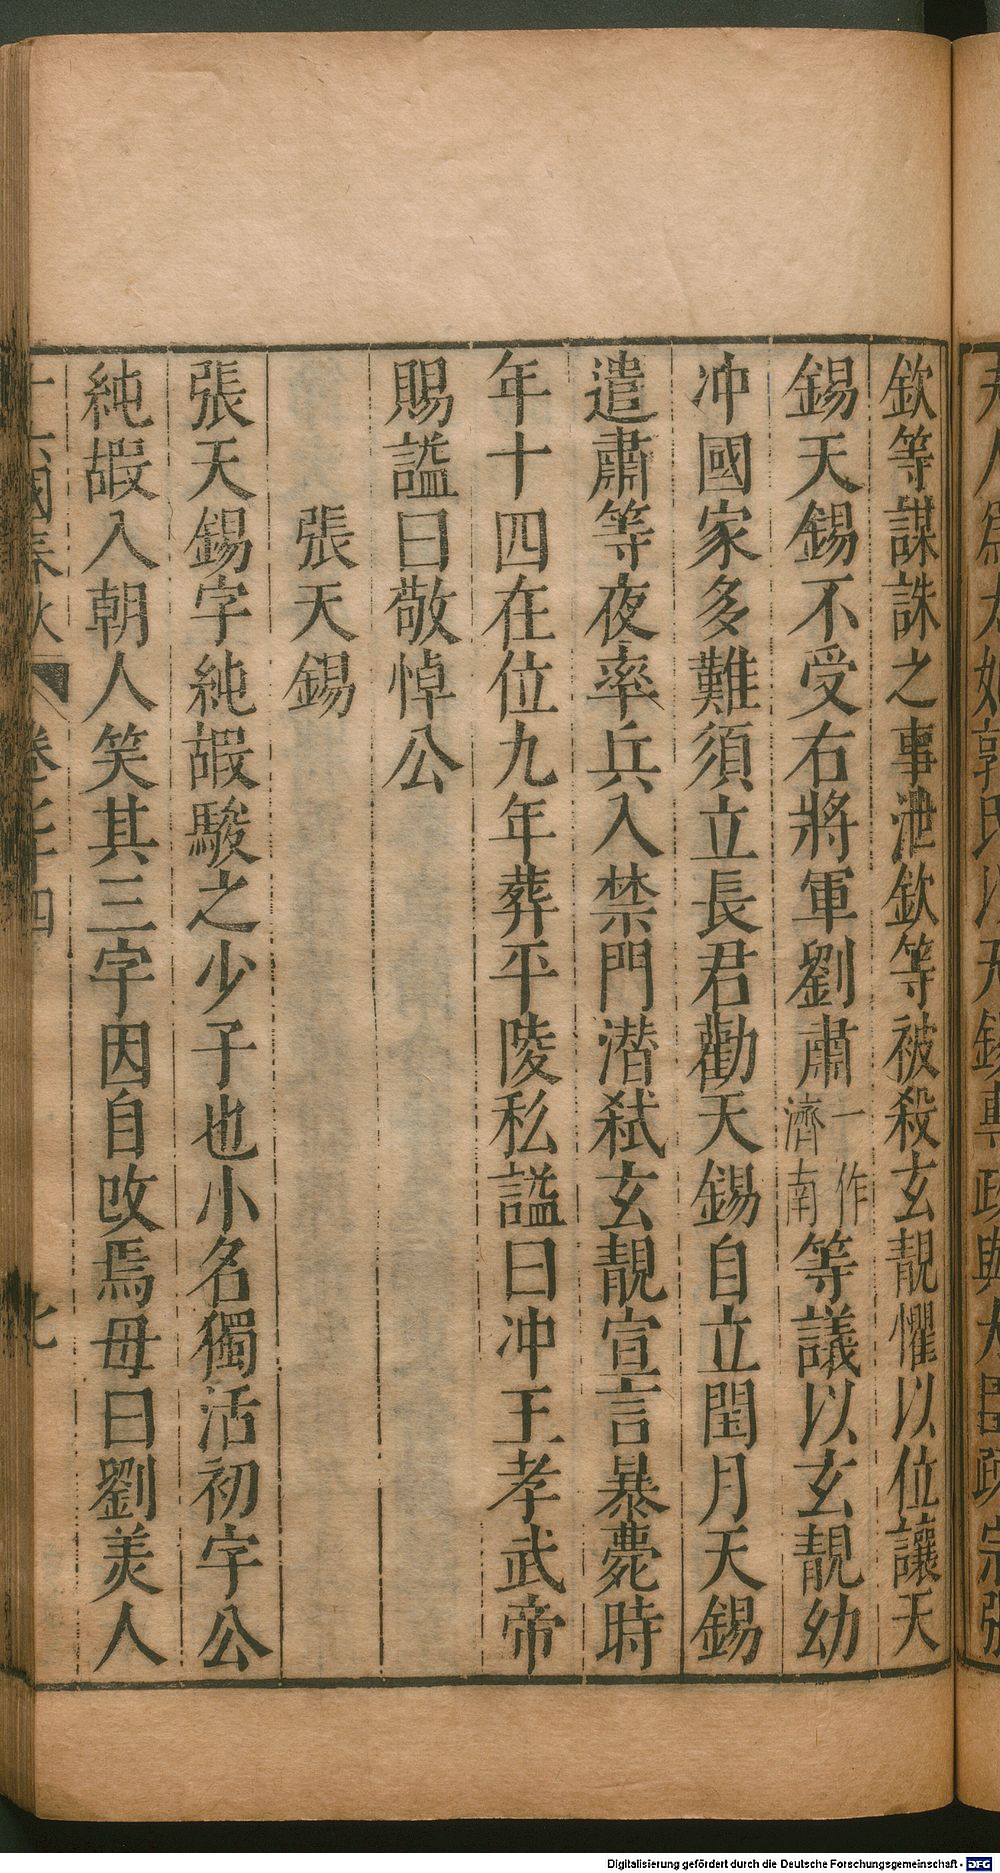 欽等謀誅之事泄欽等被殺玄靚懼以位讓天
錫天錫不受右將軍劉肅一作濟南等議以玄靚幼
冲國家多難須立長君勸天錫自立閏月天錫
遣肅等夜率兵入禁門潜弑玄靚宣言暴薨時
年十四在位九年葬平陵私謚曰冲王孝武帝
賜謚曰敬悼公
張天錫
張天錫字純嘏駿之少子也小名獨活初字公
純嘏入朝人笑其三字因自改焉母曰劉美人
十六國春秋 卷七十四 七
Digitalisierung gefördert durch die Deutsche Forschungsgemeinschaft - DFG